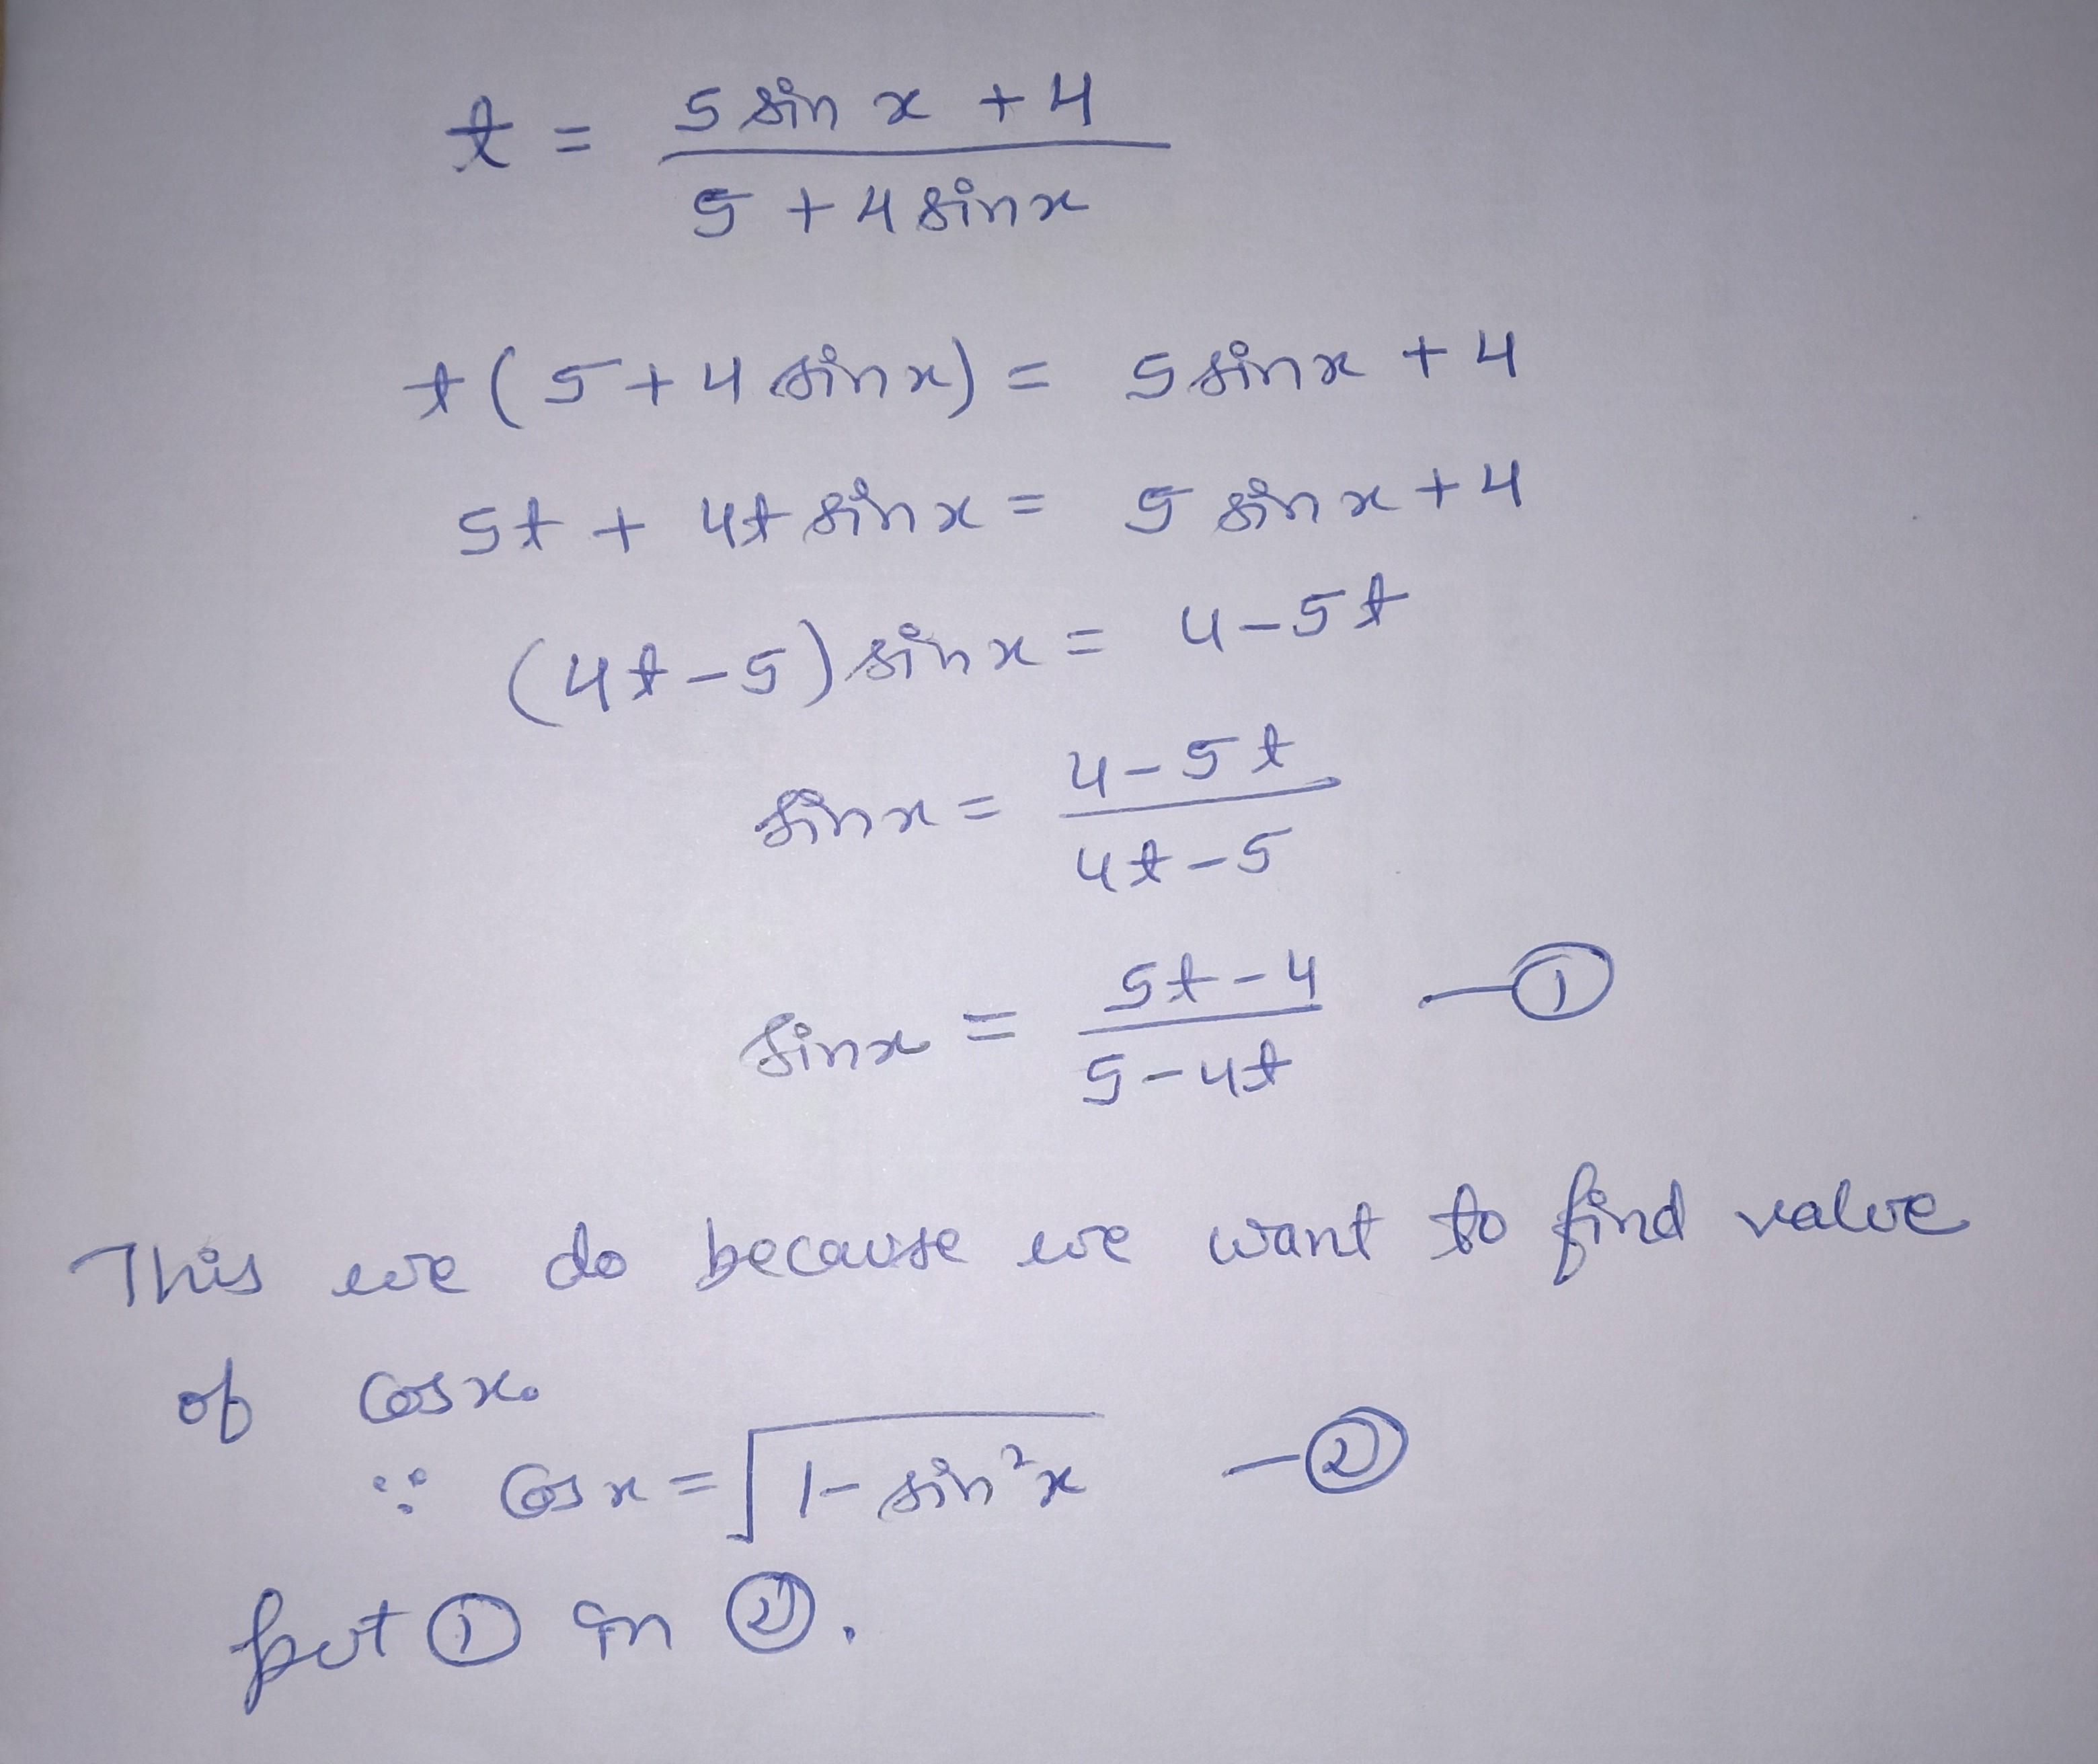 t = 5 sin x + 4
5 + 4 sin x
t ( 5 + 4 sin x ) = 5 sin x + 4
5t + 4t sin x = 5 sin x + 4
( 4t - 5 ) sin x = 4 - 5t
sin x = 4 - 5t
4t - 5
sin x = 5t - 4 — ①
5 - 4t
This we do because we want to find value
of cos x.
∵ cos x = √1 - sin²x — ②
put ① in ②.